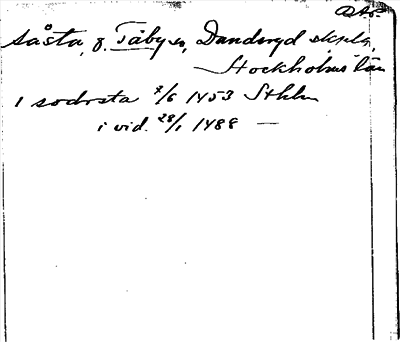 DAs.
Såsta, g. Täby sn, Danderyd skpla,
Stockholms län
i sodrsta 7/6 1453 Sthlm
i vid. 28/1 1488 —